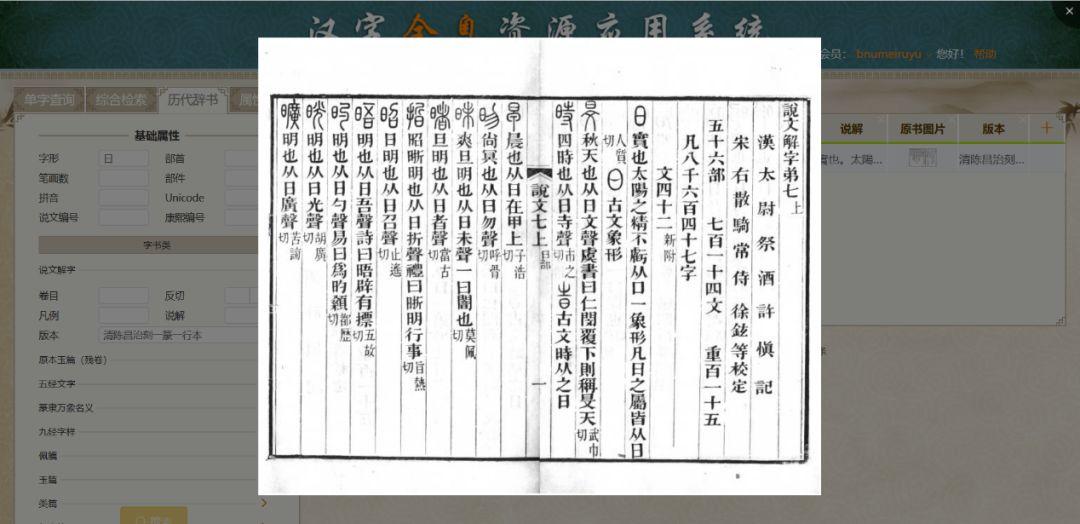 汉字全息资源应用系统
会员： bnumeiruyu 您好！ 帮助
单字查询 综合检索 历代辞书
基础属性
字形 日 部首
笔画数 部件
拼音 Unicode
说文编号 康熙编号
字书类
说文解字
卷目 反切
凡例 说解
版本 清陈昌治刻一篆一行本
原本玉篇（残卷）
五经文字
篆隶万象名义
九经字样
佩觿
玉篇
类篇
說文解字弟七上
漢太尉祭酒許愼記
宋右散騎常侍徐鉉等校定
五十六部 七百一十四文 重百一十五
凡八千六百四十七字
文四十二新附
日實也太陽之精不虧从囗一象形凡日之屬皆从日
人質切 古文象形
旻秋天也从日文聲虞書曰仁閔覆下則稱旻天武巾切
時四時也从日寺聲市之切 古文時从之日
說文七上 日部 一
早晨也从日在甲上子浩切
昒尚冥也从日勿聲呼骨切
昧爽旦明也从日未聲一曰闇也莫佩切
睹旦明也从日者聲當古切
晢昭晣明也从日折聲禮曰晣明行事旨熱切
昭日明也从日召聲止遙切
晤明也从日吾聲詩曰晤辟有摽五故切
旳明也从日勺聲易曰爲旳顙都歷切
晄明也从日光聲胡廣切
曠明也从日廣聲苦謗切
说解 原书图片 版本 +
也。太陽... 清陈昌治刻...